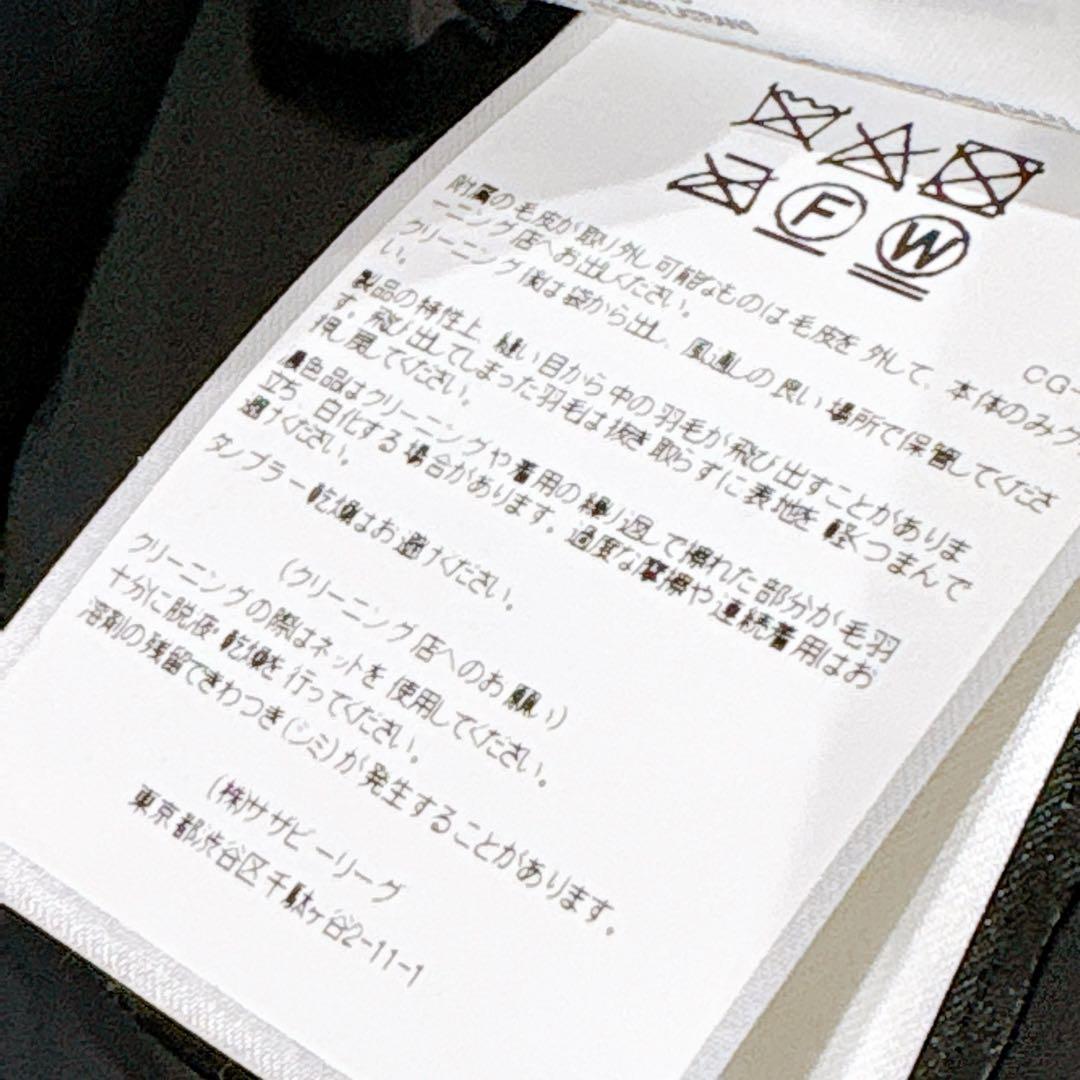 F W
CG-
附属の毛皮が取り外し可能なものは毛皮を外して、本体のみク
ーニング店へお出しください。
クリーニング後は袋から出し、風通しの良い場所で保管してくださ
い。
製品の特性上、縫い目から中の羽毛が飛び出すことがありま
す。飛び出してしまった羽毛は抜き取らずに表地を軽くつまんで
押し戻してください。
濃色品はクリーニングや着用の繰り返しで擦れた部分が毛羽
立ち、白化する場合があります。過度な摩擦や連続着用はお
避けください。
タンブラー乾燥はお避けください。
(クリーニング店へのお願い)
クリーニングの際はネットを使用してください。
十分に脱液・乾燥を行ってください。
溶剤の残留できわつき(シミ)が発生することがあります。
(株)サザビーリーグ
東京都渋谷区千駄ヶ谷2-11-1